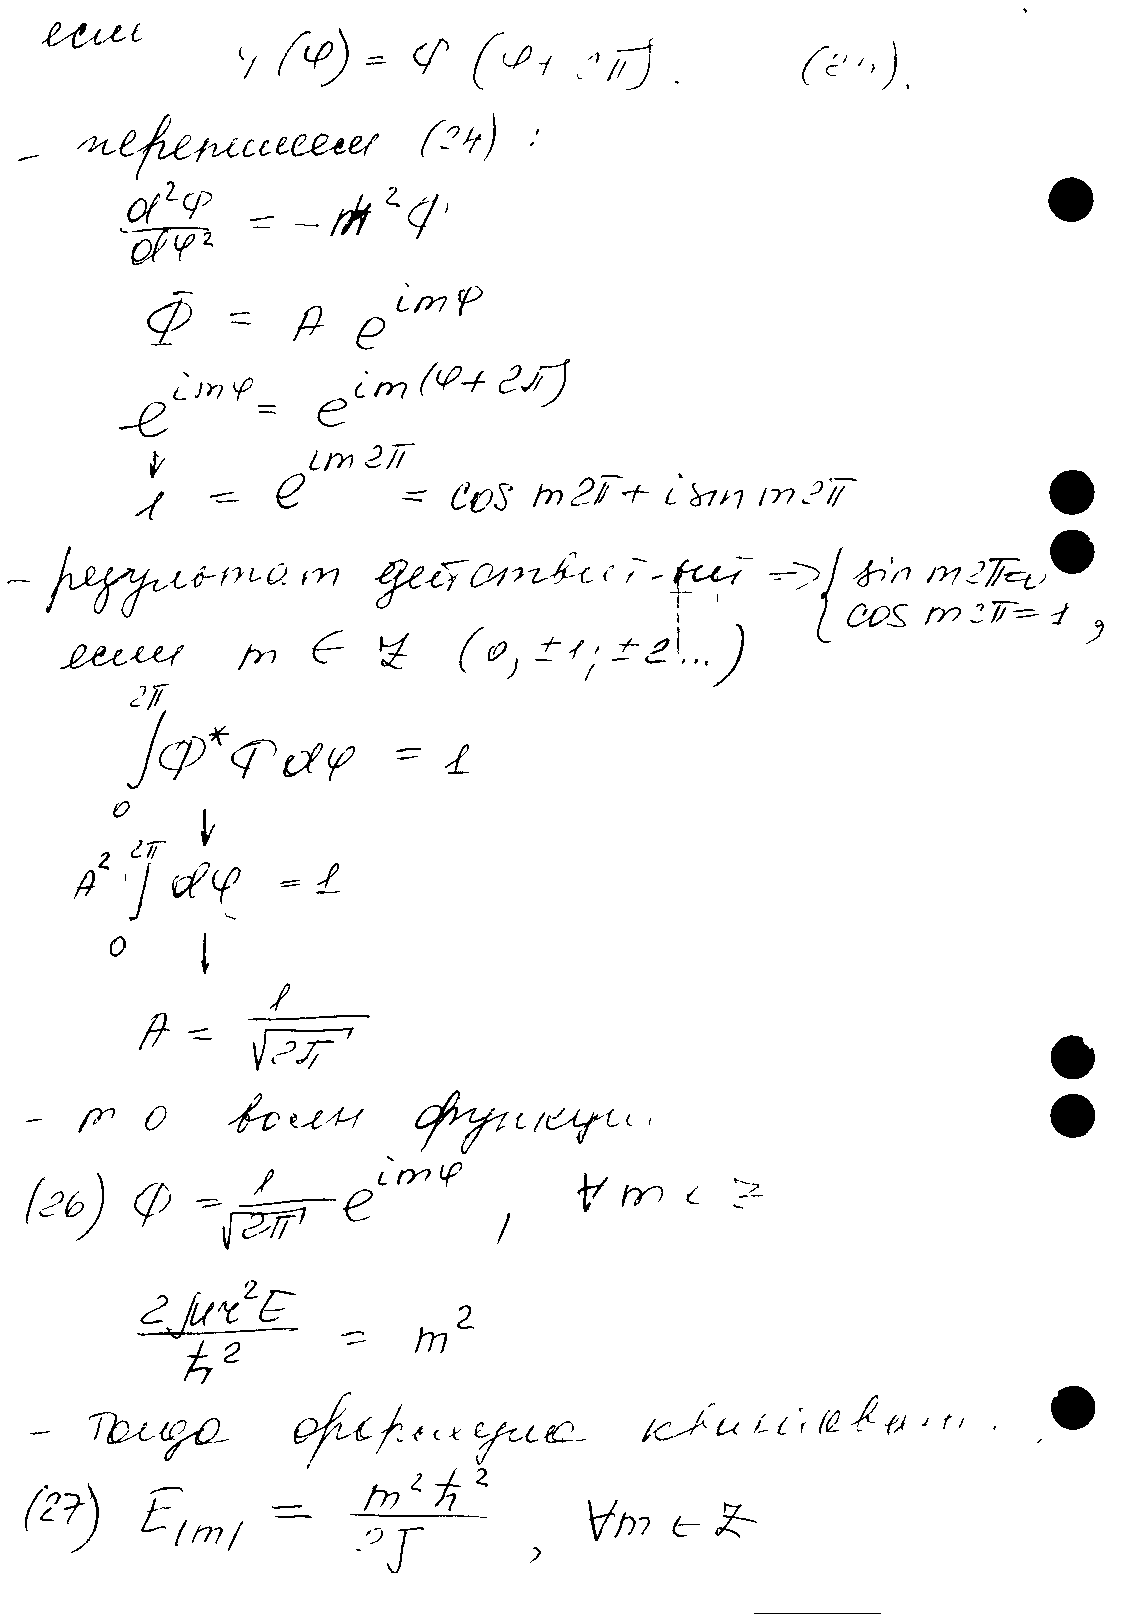 если
(φ) = Φ (φ + 2π).
- перепишем (24) :
d²Φ/dφ² = - m² Φ
Φ = A e^{imφ}
e^{imφ} = e^{im(φ+2π)}
↓
1 = e^{im2π} = cos m2π + i sin m2π
- результат действит-ный => { sin m2π=0
cos m2π = 1 ,
если m ∈ Z (0, ±1; ±2...)
∫₀^{2π} Φ* Φ dφ = 1
↓
A² ∫₀^{2π} dφ = 1
↓
A = 1/√2π
- т о волн функци
(26) Φ = 1/√2π e^{imφ} , ∀m ∈ Z
2μr²E/ħ² = m²
- Тогда формула
(27) E|m| = m²ħ²/2J , ∀m ∈ Z